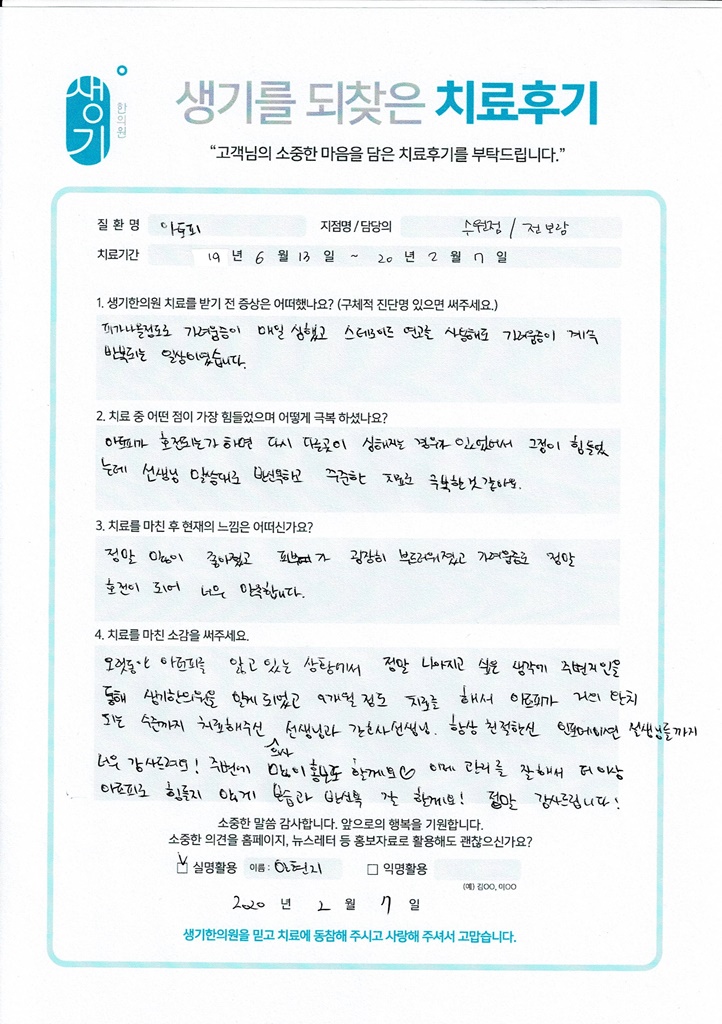 생기
한의원
생기를 되찾은 치료후기
“고객님의 소중한 마음을 담은 치료후기를 부탁드립니다.”
질 환 명 아토피 지점명 / 담당의 수원점 / 전보람
치료기간 19 년 6 월 13 일 ~ 20 년 2 월 7 일
1. 생기한의원 치료를 받기 전 증상은 어떠했나요? (구체적 진단명 있으면 써주세요.)
피가나올정도로 가려움증이 매일 심했고 스테로이드 연고를 사용해도 가려움증이 계속
반복되는 일상이였습니다.
2. 치료 중 어떤 점이 가장 힘들었으며 어떻게 극복 하셨나요?
아토피가 호전되는가 하면 다시 다른곳이 심해지는 경우가 있었어서 그점이 힘들었
는데 선생님 말씀대로 반신욕하고 꾸준한 치료로 극복한것 같아요.
3. 치료를 마친 후 현재의 느낌은 어떠신가요?
정말 많이 좋아졌고 피부 가 굉장히 부드러워졌고 가려움증도 정말
호전이 되어 너무 만족합니다.
4. 치료를 마친 소감을 써주세요.
오랫동안 아토피를 앓고 있는 상황에서 정말 나아지고 싶은 생각에 주변지인을
통해 생기한의원을 알게 되었고 9개월 정도 치료를 해서 아토피가 거의 완치
되는 수준까지 치료해주신 의사 선생님과 간호사선생님, 항상 친절하신 인포메이션 선생님들까지
너무 감사드려요! 주변에 많이 홍보도 할게요♡ 이제 관리를 잘해서 더이상
아토피로 힘들지 않게 보습과 반신욕 잘 할게요! 정말 감사드립니다!
소중한 말씀 감사합니다. 앞으로의 행복을 기원합니다.
소중한 의견을 홈페이지, 뉴스레터 등 홍보자료로 활용해도 괜찮으신가요?
실명활용 이름 : 안현지 익명활용
(예) 김OO, 이OO
2020 년 2 월 7 일
생기한의원을 믿고 치료에 동참해 주시고 사랑해 주셔서 고맙습니다.